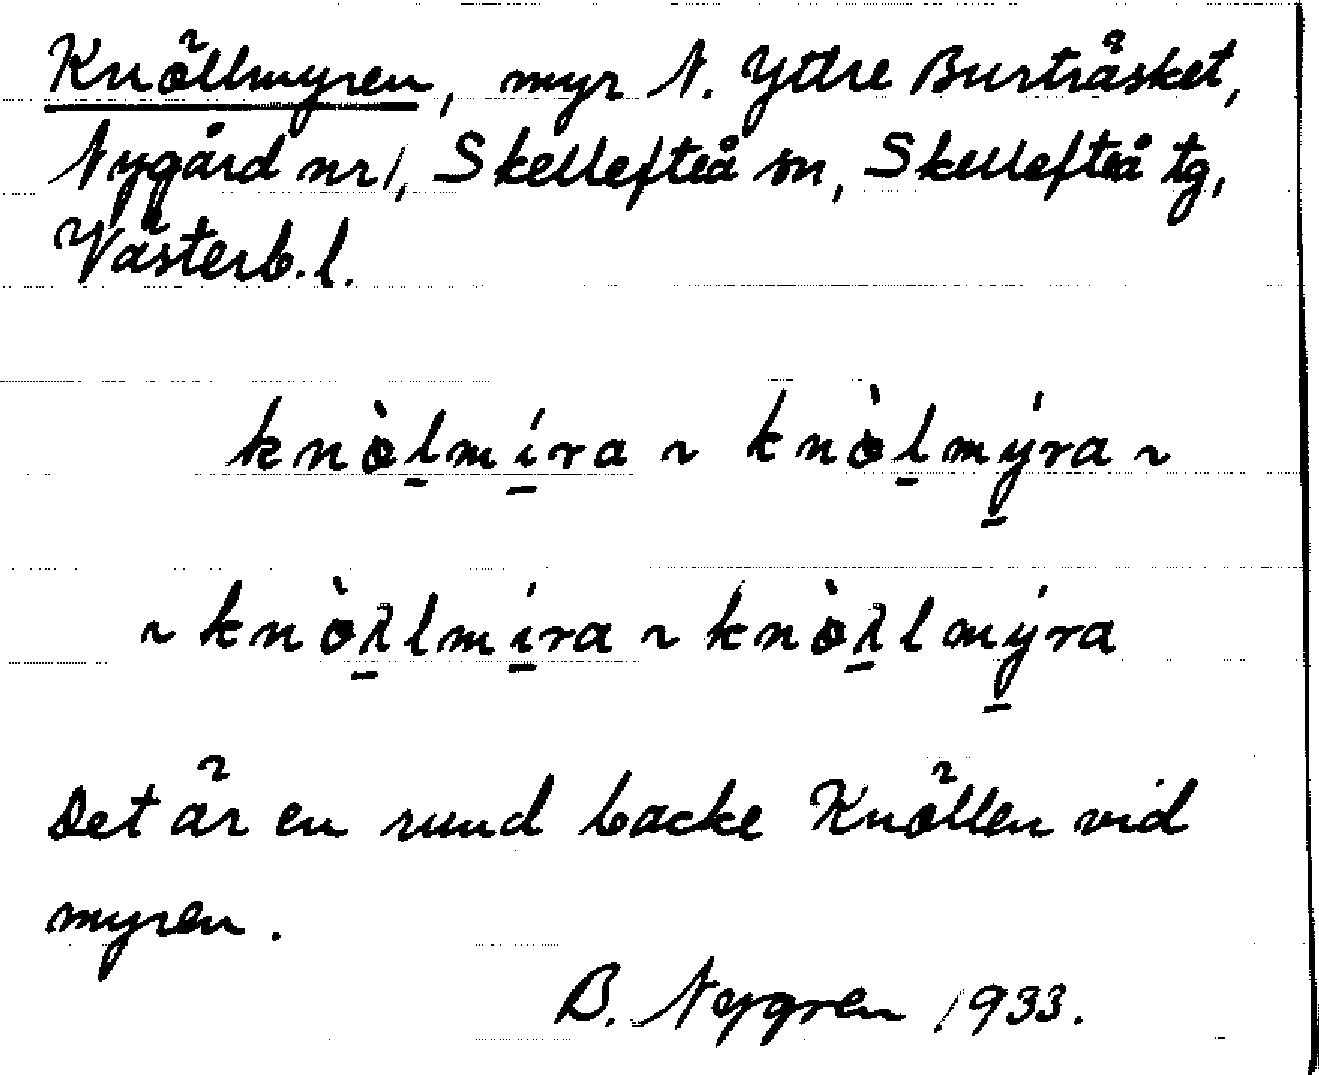 Knöllmyren, myr N. Yttre Burträsket,
Nygård nr 1, Skellefteå sn, Skellefteå tg,
Västerb. l.
knò̵l̠mí̠ra ~ knò̵l̠mý̠ra ~
~ knò̵λ̠lmí̠ra ~ knò̵λ̠lmý̠ra
Det är en rund backe Knöllen vid
myren.
B. Nygren 1933.